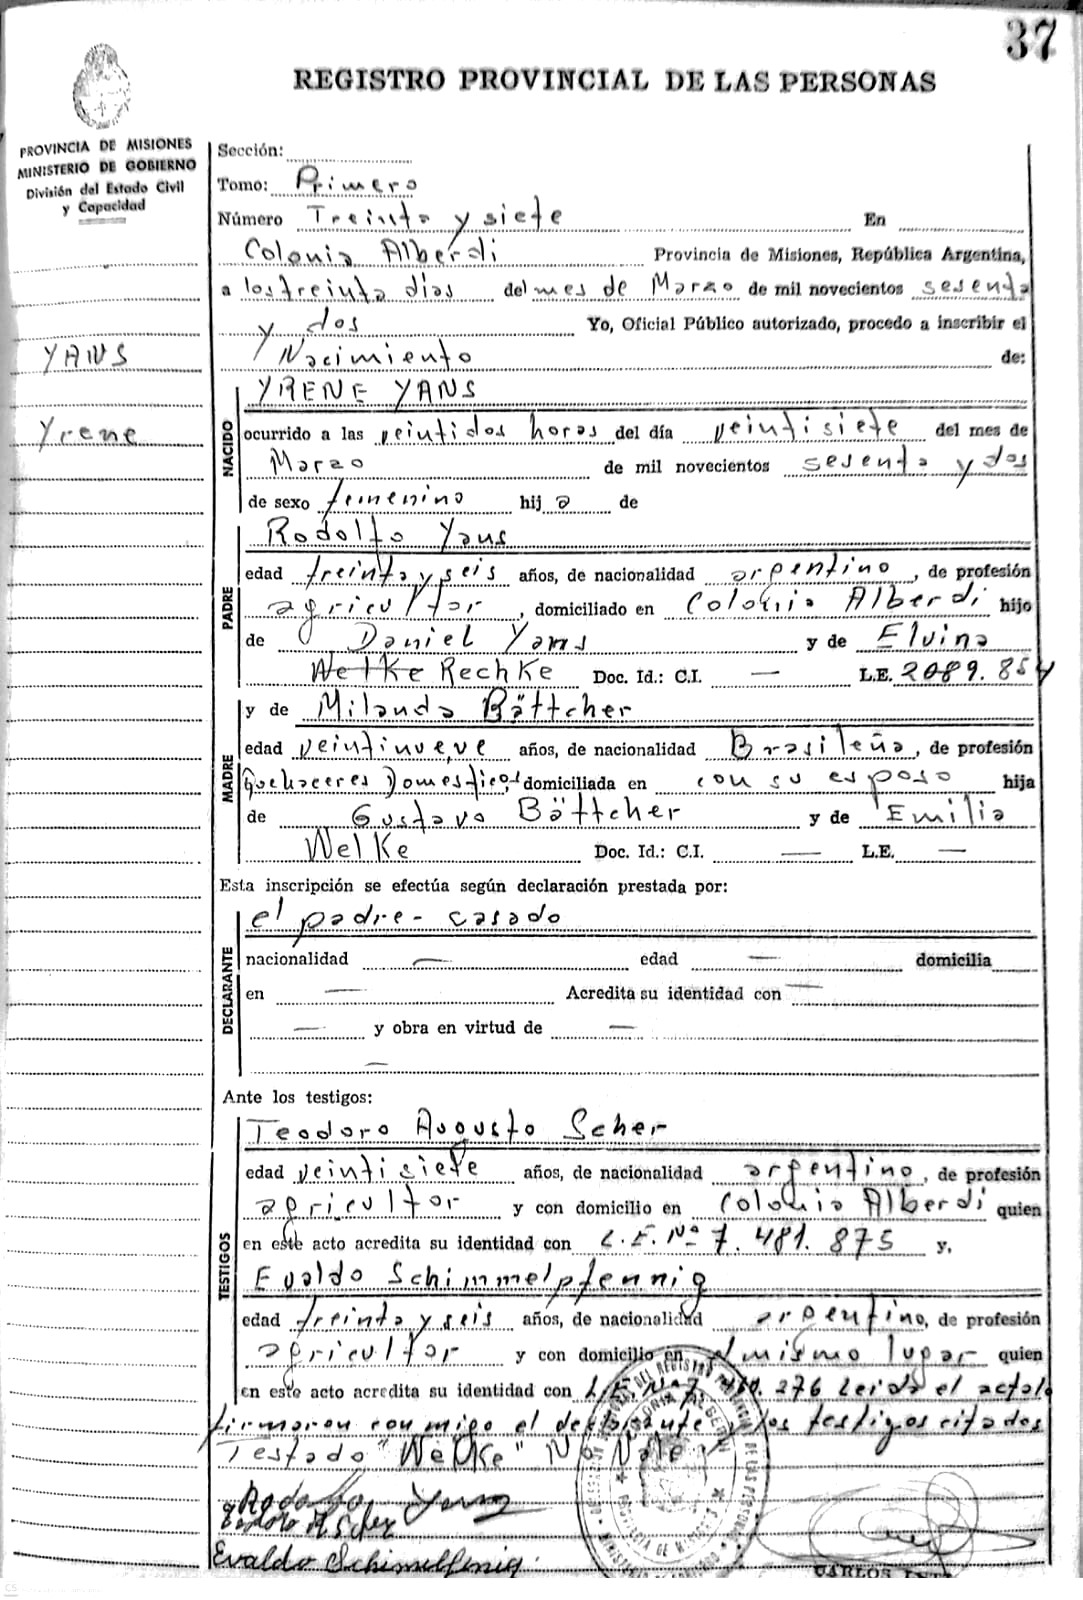 37
REGISTRO PROVINCIAL DE LAS PERSONAS
PROVINCIA DE MISIONES
MINISTERIO DE GOBIERNO
División del Estado Civil
y Capacidad
YANS
Yrene
Sección:
Tomo: Primero
Número Treinta y siete En
Colonia Alberdi Provincia de Misiones, República Argentina,
a los treinta días del mes de Marzo de mil novecientos sesenta
y dos Yo, Oficial Público autorizado, procedo a inscribir el
Nacimiento de:
NACIDO
YRENE YANS
ocurrido a las veintidos horas del día veintisiete del mes de
Marzo de mil novecientos sesenta y dos
de sexo femenino hij a de
PADRE
Rodolfo Yans
edad treinta y seis años, de nacionalidad argentino, de profesión
agricultor, domiciliado en Colonia Alberdi hijo
de Daniel Yans y de Elvina
Welke Rechke Doc. Id.: C.I. — L.E. 2089.854
MADRE
y de Milanda Böttcher
edad veintinueve años, de nacionalidad Brasileña, de profesión
Quehaceres Domesticos domiciliada en con su esposo hija
de Gustavo Böttcher y de Emilia
Welke Doc. Id.: C.I. — L.E. —
Esta inscripción se efectúa según declaración prestada por:
DECLARANTE
el padre - casado
nacionalidad — edad — domicilia
en — Acredita su identidad con —
— y obra en virtud de —
—
Ante los testigos:
TESTIGOS
Teodoro Augusto Scher
edad veintisiete años, de nacionalidad argentino, de profesión
agricultor y con domicilio en Colonia Alberdi quien
en este acto acredita su identidad con L.E. Nº 7.481.875 y,
Evaldo Schimmelpfennig
edad treinta y seis años, de nacionalidad argentino, de profesión
agricultor y con domicilio en el mismo lugar quien
en este acto acredita su identidad con L.E. Nº 7. 276 Leida el acta
firmaron conmigo el declarante los testigos citados
Testado "Welke" No Vale
Rodolfo Yans
Teodoro A Scher
Evaldo Schimelfenig
CARLOS